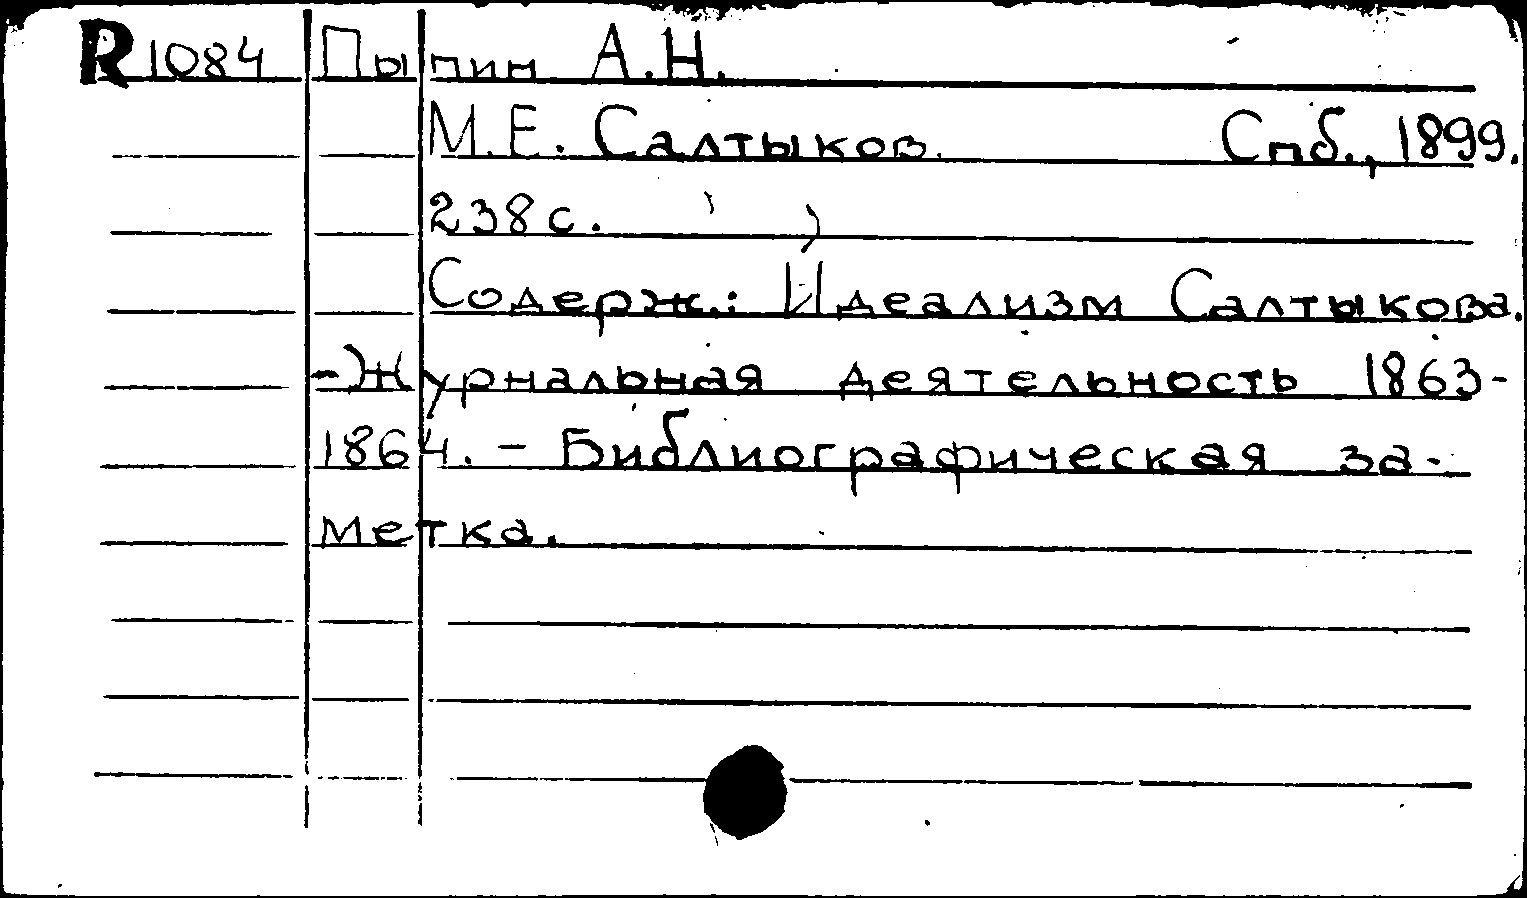 R1084 Пыпин А.Н.
М.Е. Салтыков. Спб., 1899.
238с.
Содерж.: Идеализм Салтыкова.
-Журнальная деятельность 1863-
1864. - Библиографическая за-
метка.